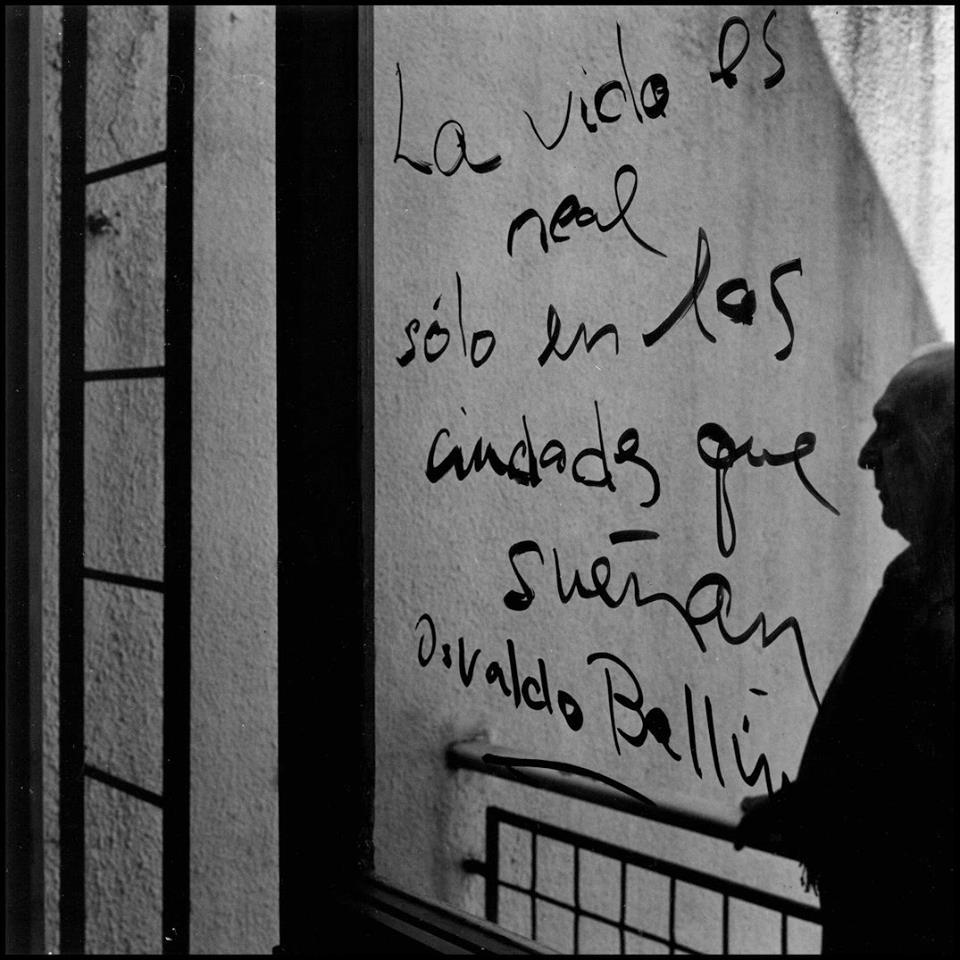 La vida es
real
sólo en las
ciudades que
sueñan
Osvaldo Ballin